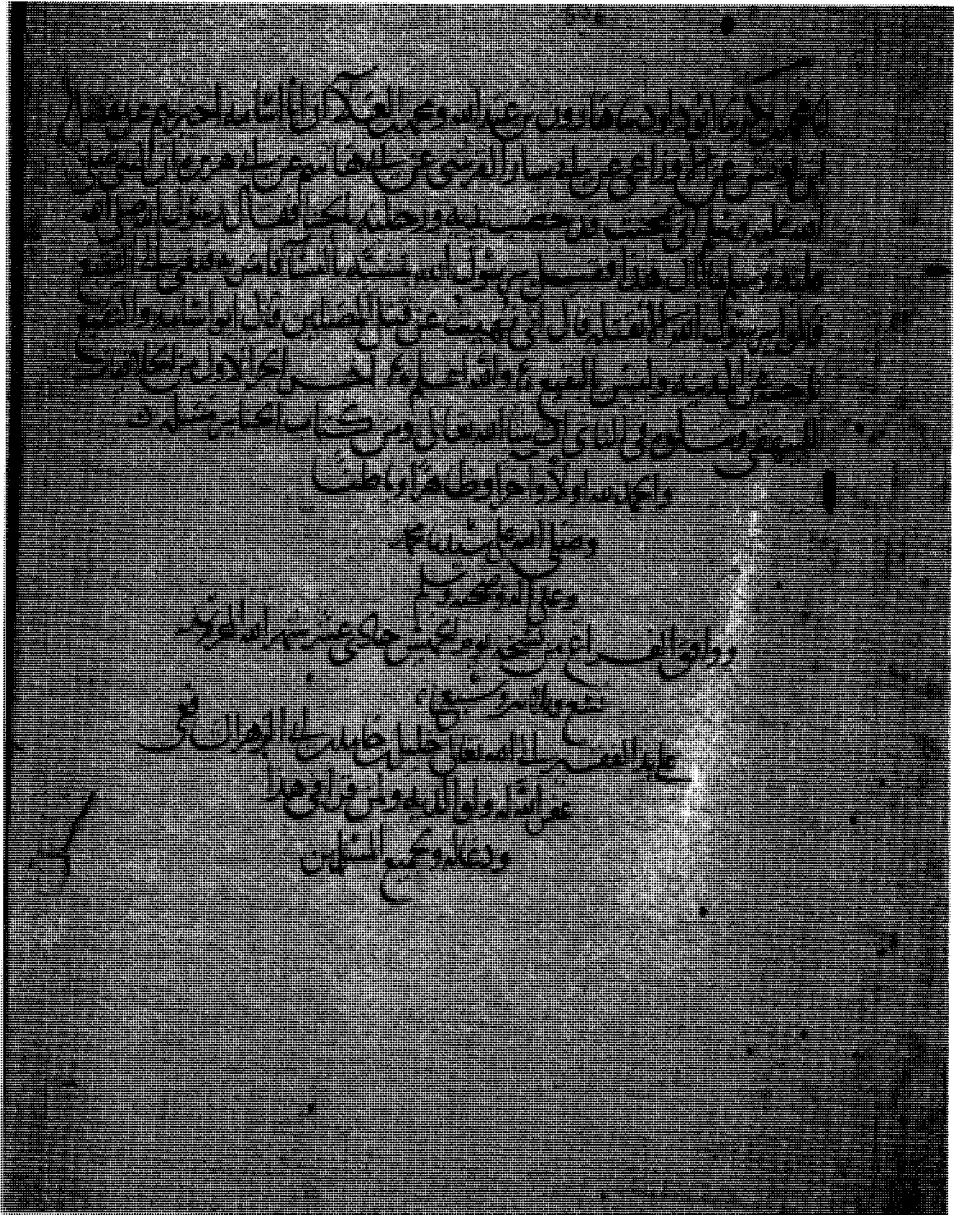 محمد بن بكر نا ابو داود نا هارون بن عبد الله ومحمد بن العلاء ان ابا اسامة اخبرهم عن مفضل
ابن يونس عن الاوزاعي عن ابي يسار القرشي عن ابي هاشم عن ابي هريرة ان النبي صلى
الله عليه وسلم اتي بمخنث قد خضب يديه ورجليه بالحنا فقال رسول الله صلى الله
عليه وسلم ما بال هذا فقيل يرسول الله يتشبه بالنسا فامر به فنفي الى النقيع
قالوا يرسول الله الا نقتله قال اني نهيت عن قتل المصلين قال ابو اسامة والنقيع
ناحية عن المدينة وليس بالبقيع والله اعلم اخر الجزء الاول من الخلافيات
للبيهقي ويتلوه في الثاني ان شا الله تعالى ومن كتاب الجنايز مسلة
والحمد لله اولا واخرا وظاهرا وباطنا
وصلى الله على سيدنا محمد
وعلى اله وصحبه وسلم
ووافق الفراغ من نسخه يوم الخميس حادي عشر شهر الله
تسع وثلاثين وسبعماية
على يد الفقير الى الله تعالى خليل بن
غفر الله له ولوالديه ولمن قرا في هذا
ودعا له ولجميع المسلمين